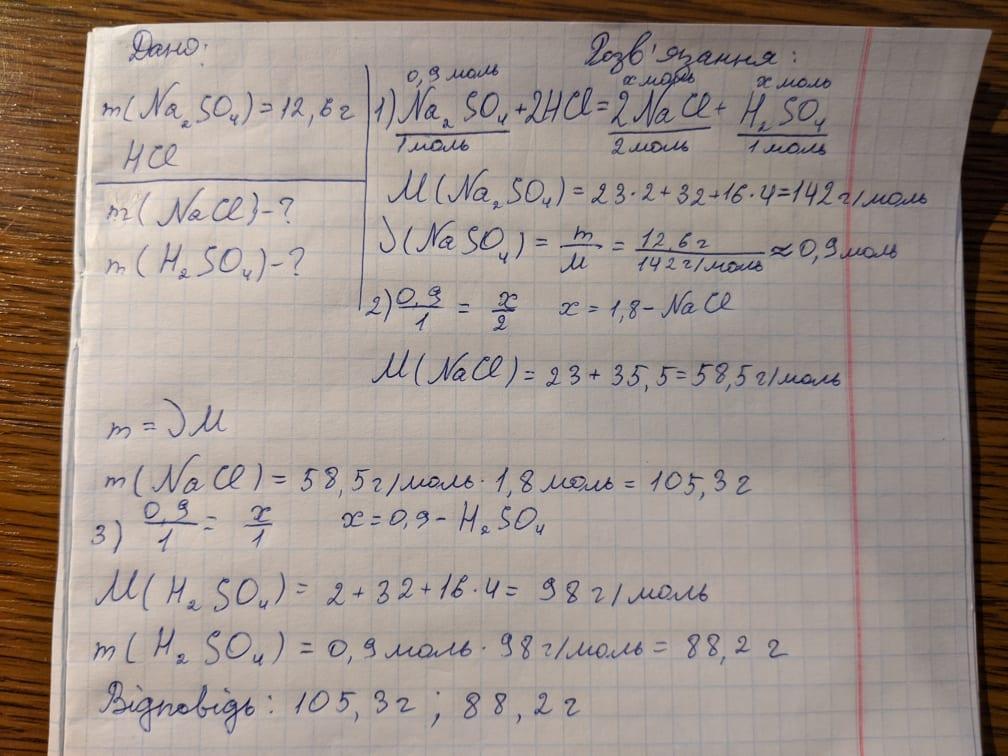 Дано:
m(Na₂SO₄) = 12,6 г
HCl
m(NaCl) - ?
m(H₂SO₄) - ?
Розв'язання:
0,9 моль x моль x моль
1) Na₂SO₄ + 2HCl = 2NaCl + H₂SO₄
1 моль 2 моль 1 моль
M(Na₂SO₄) = 23·2+32+16·4=142 г/моль
ν(NaSO₄) = m/M = 12,6 г/142 г/моль ≈ 0,9 моль
2) 0,9/1 = x/2 x = 1,8 - NaCl
M(NaCl) = 23 + 35,5 = 58,5 г/моль
m = νM
m(NaCl) = 58,5 г/моль · 1,8 моль = 105,3 г
3) 0,9/1 = x/1 x = 0,9 - H₂SO₄
M(H₂SO₄) = 2+32+16·4 = 98 г/моль
m(H₂SO₄) = 0,9 моль · 98 г/моль = 88,2 г
Відповідь: 105,3 г ; 88,2 г